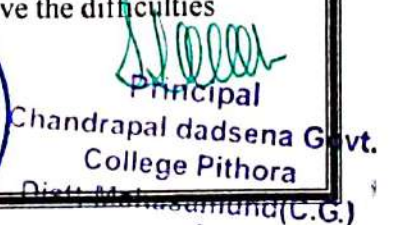 ve the difficulties
Principal
Chandrapal dadsena Govt.
College Pithora
Distt Mahasamund(C.G.)